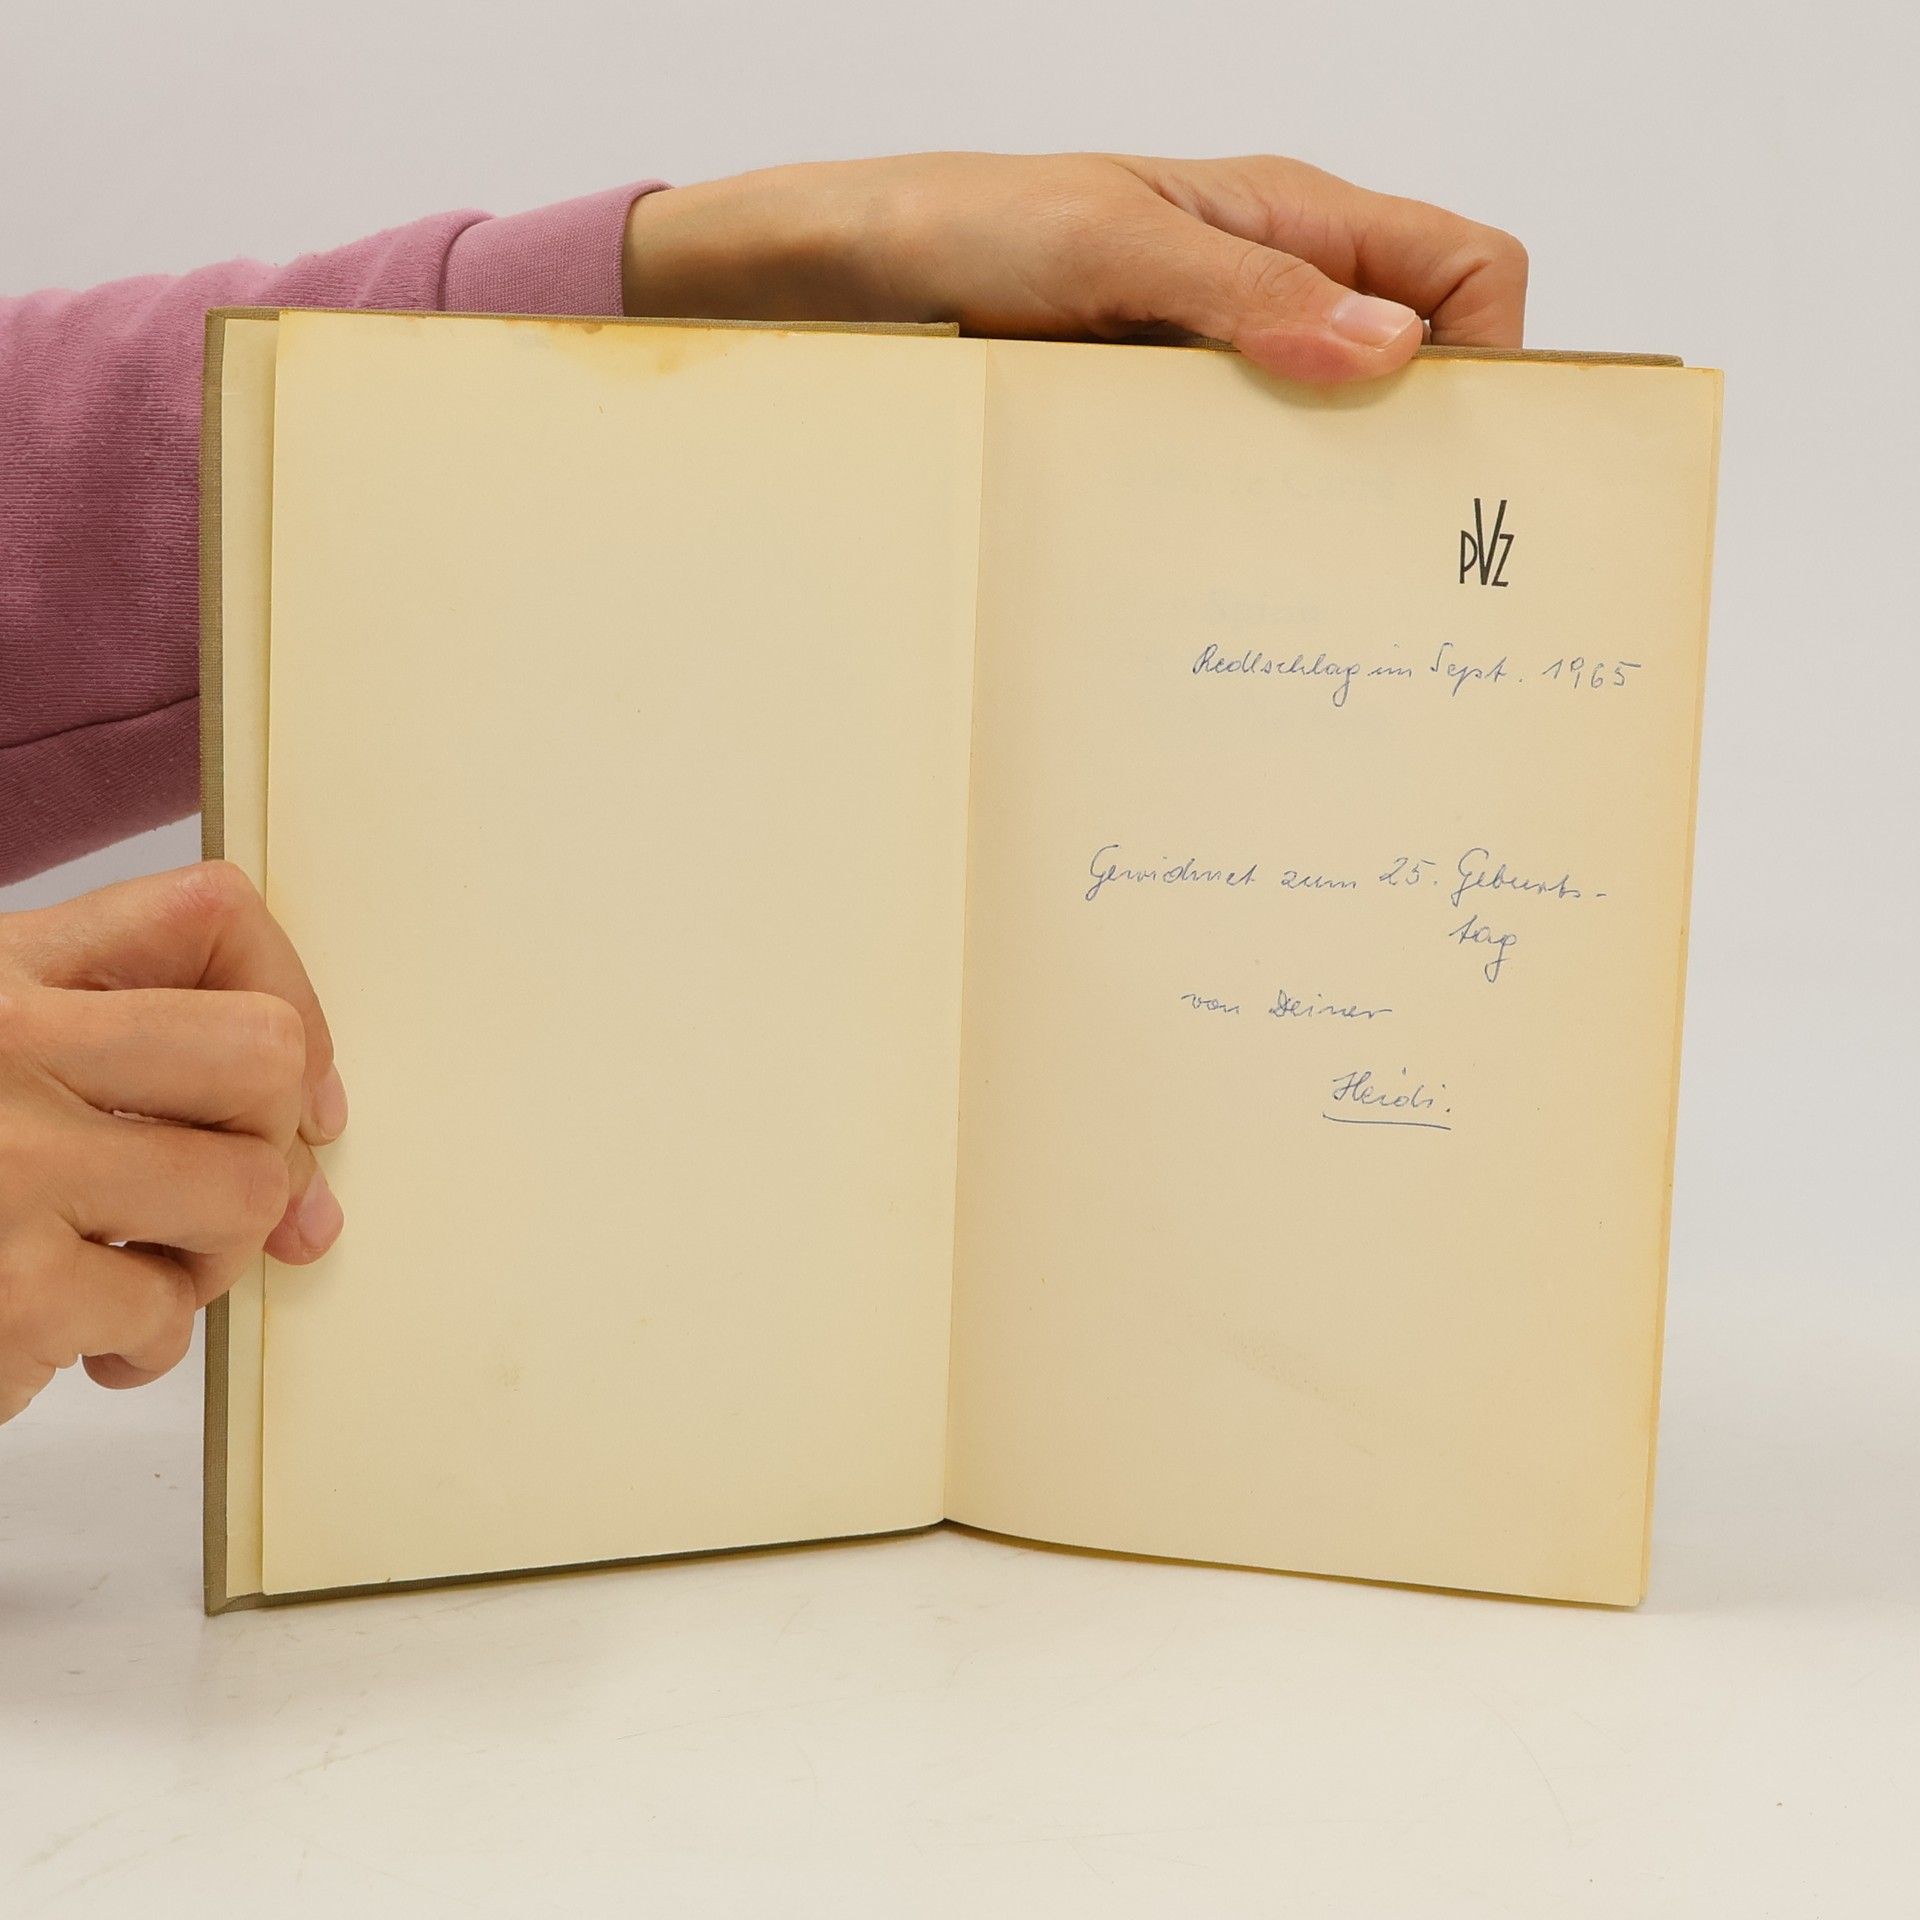 PVZ
Redlschlag im Sept. 1965
Gewidmet zum 25. Geburts-
tag
von Deiner
Heidi.